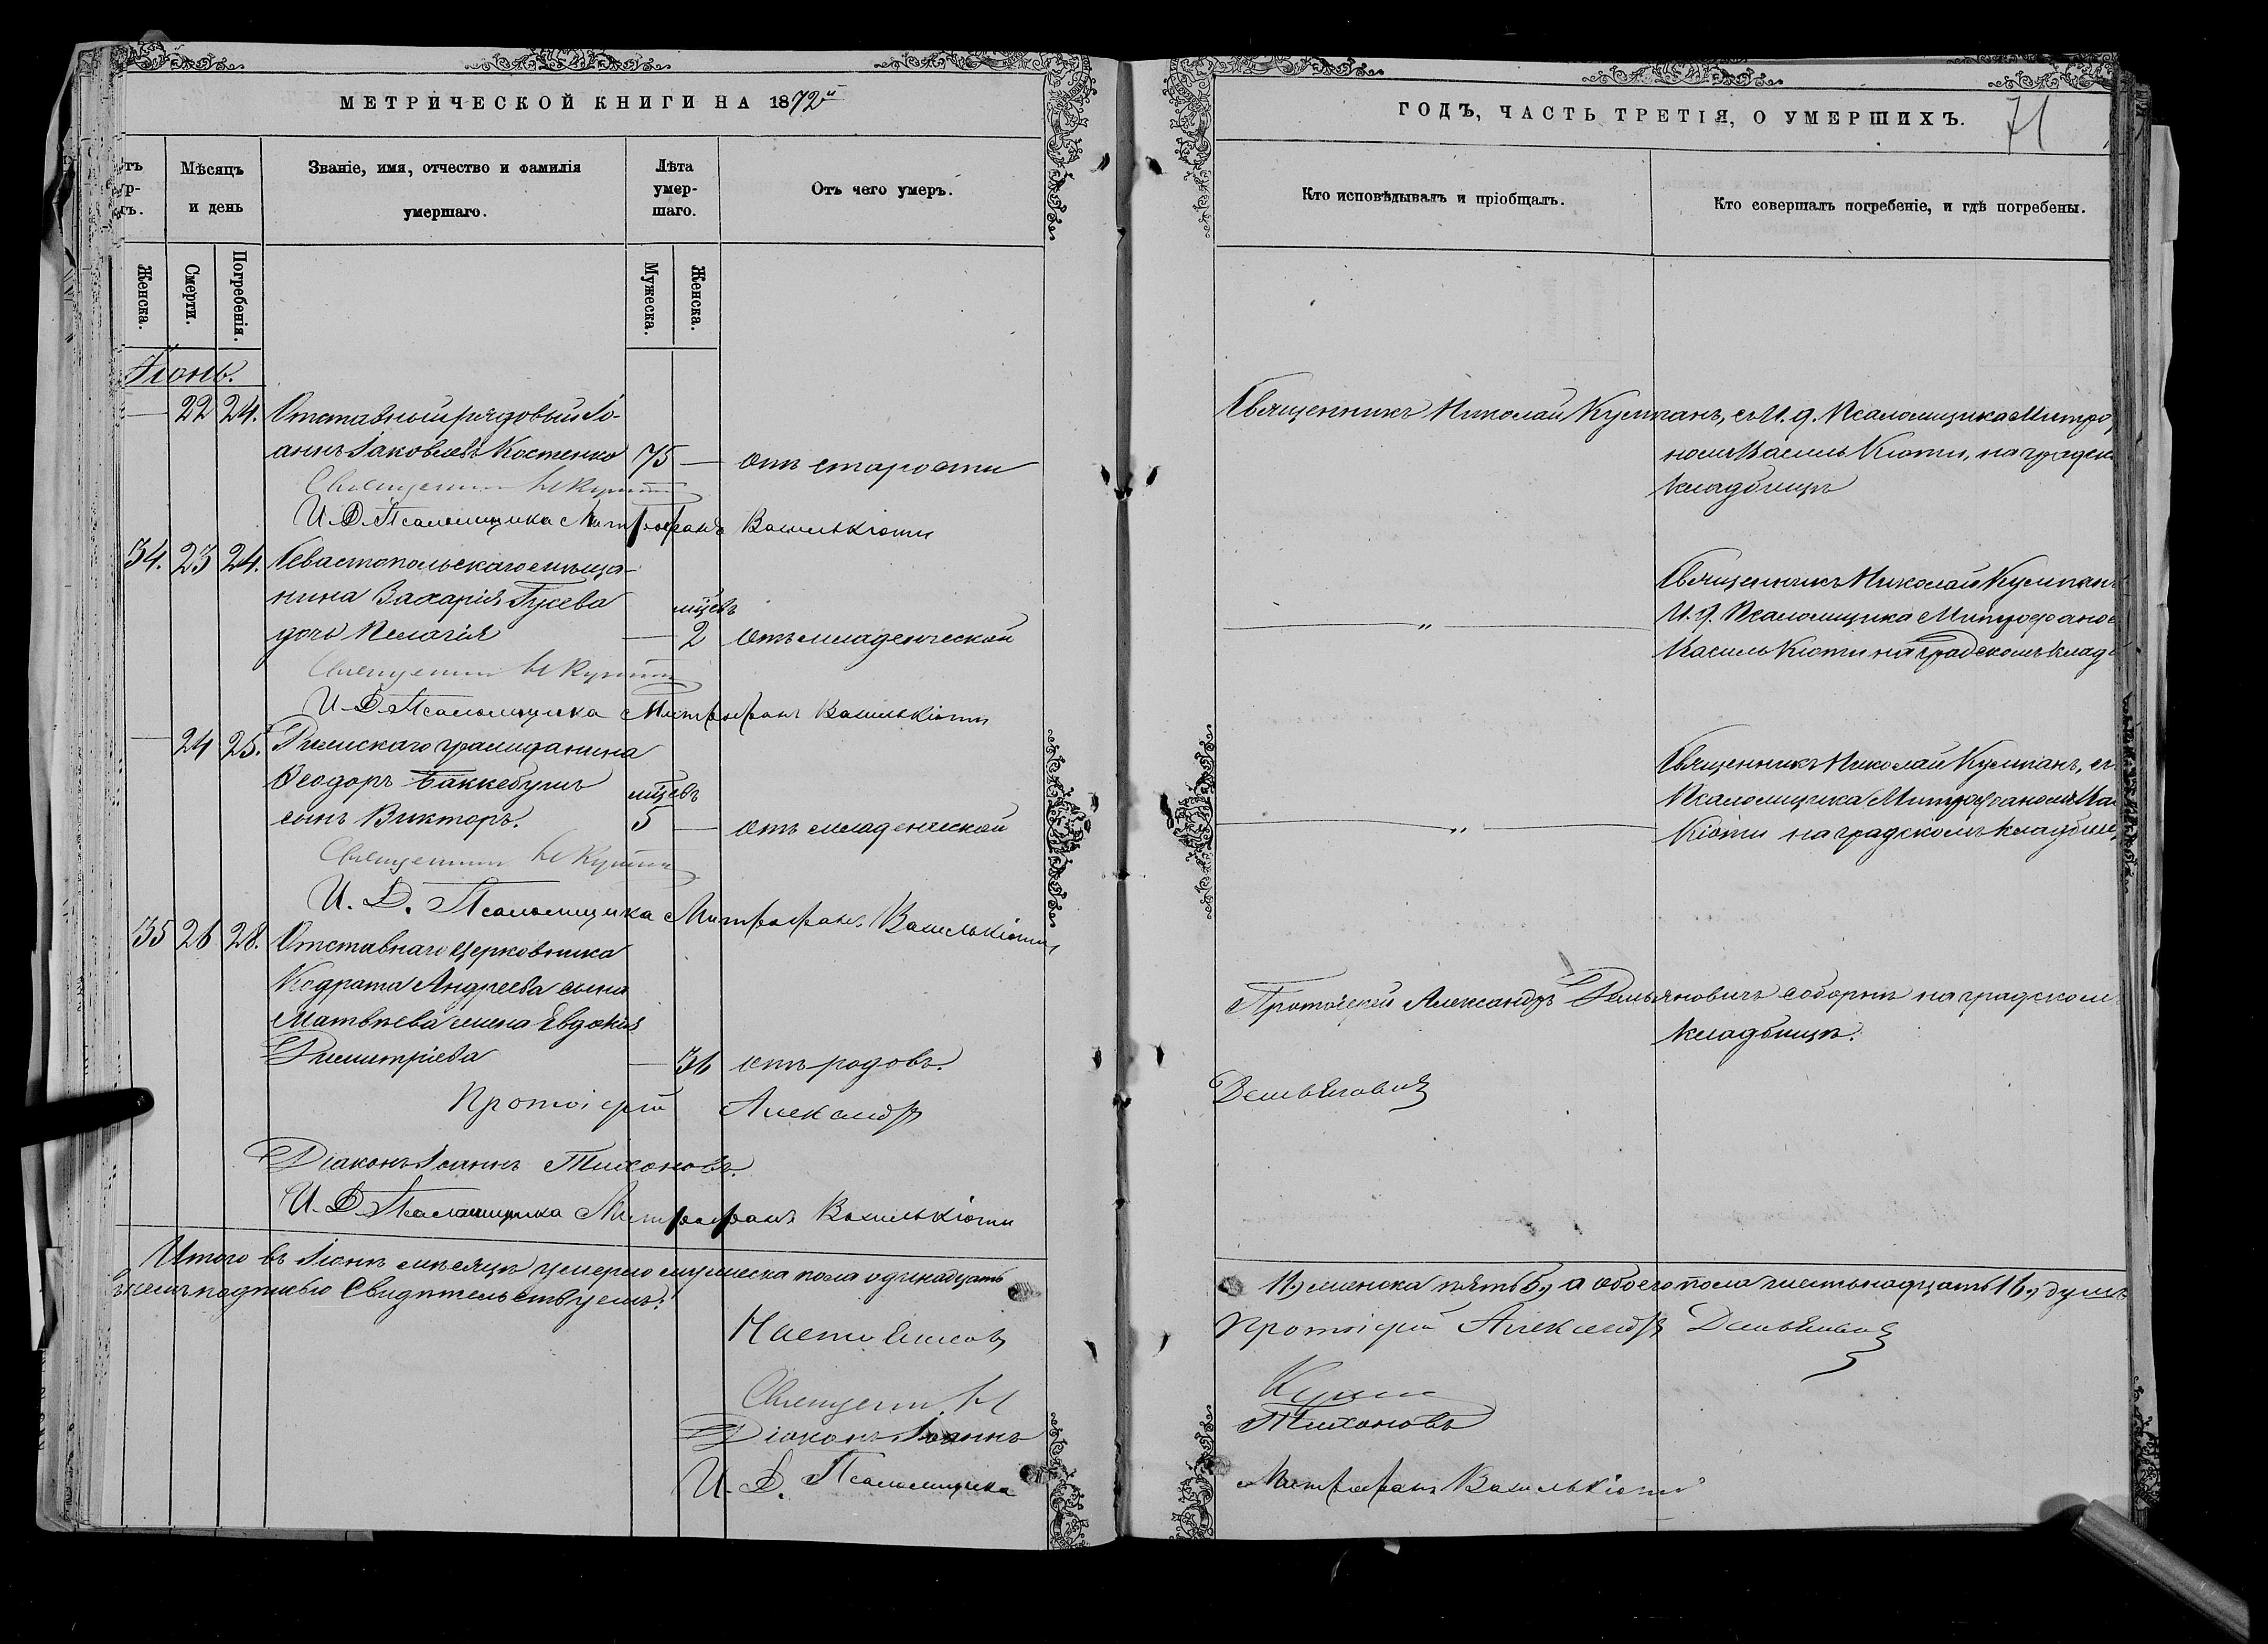 МЕТРИЧЕСКОЙ КНИГИ НА 1872й
ГОДЪ, ЧАСТЬ ТРЕТІЯ, О УМЕРШИХЪ.
71
Мѣсяцъ
и день
Званіе, имя, отчество и фамилія
умершаго.
Лѣта
умер-
шаго.
Отъ чего умеръ.
Кто исповѣдывалъ и пріобщалъ.
Кто совершалъ погребеніе, и гдѣ погребены.
Женска.
Смерти.
Погребенія.
Мужеска.
Женска.
Іюнь.
— 22 24. Отставный рядовый Іо-
аннъ Іаковлевъ Костенко 75 — отъ старости
Священникъ Николай Кушпанъ, съ И. д. Псаломщика Митро
номъ Василькіоти, на градск
кладбищѣ
Священник Н Ку
И. Д. Псаломщика Митрофанъ Василькіоти
34. 23 24. Севастопольскаго мѣща-
нина Захарія Гусева
дочь Пелагія
мцевъ
— 2 отъ младенческой
— „ —
Священникъ Николай Кушпан
И. д. Псаломщика Митрофаном
Василькіоти на градскомъ клад
Священник Н Ку
И. Д. Псаломщика Митрофанъ Василькіоти
— 24 25. Римскаго гражданина
Ѳеодоръ Баккебушъ
сынъ Викторъ.
мцевъ
5 — отъ младенческой
— „ —
Священникъ Николай Кушпанъ, съ
Псаломщика Митрофаномъ Ва
Кіоти на градскомъ кладбищ
Священник Н Ку
И. Д. Псаломщика Митрофанъ Василькіоти
35 26 28. Отставнаго церковника
Кодрата Андреева сына
Матвѣева жена Евдокія
Димитріева — 36 отъ родовъ.
Протоіерей Александръ Демьяновичъ соборнѣ на градском
кладбищѣ.
Протоіерей Александръ Демьяновичъ
Діаконъ Іоаннъ Тихоновъ.
И. Д. Псаломщика Митрофанъ Василькіоти
Итого въ Іюнѣ мѣсяцѣ умерло мужеска пола одинадцать
11, женска пять 5, а обоего пола шестьнадцать 16, душъ
подписью Свидѣтельствуемъ:
Протоіерей Александръ Демьяновичъ
Священ. Н
Діаконъ Іоаннъ Тихоновъ
И. Д. Псаломщика Митрофанъ Василькіоти